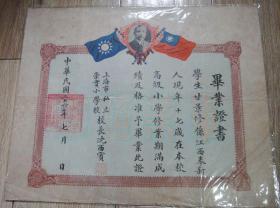 畢業證書
學生甘景修係江西奉新
人現年十七歲在本校
高級小學修業期滿成
績及格准予畢業此證
上海市私立
崇實小學校
校長沈西賓
中華民國
年七月
日